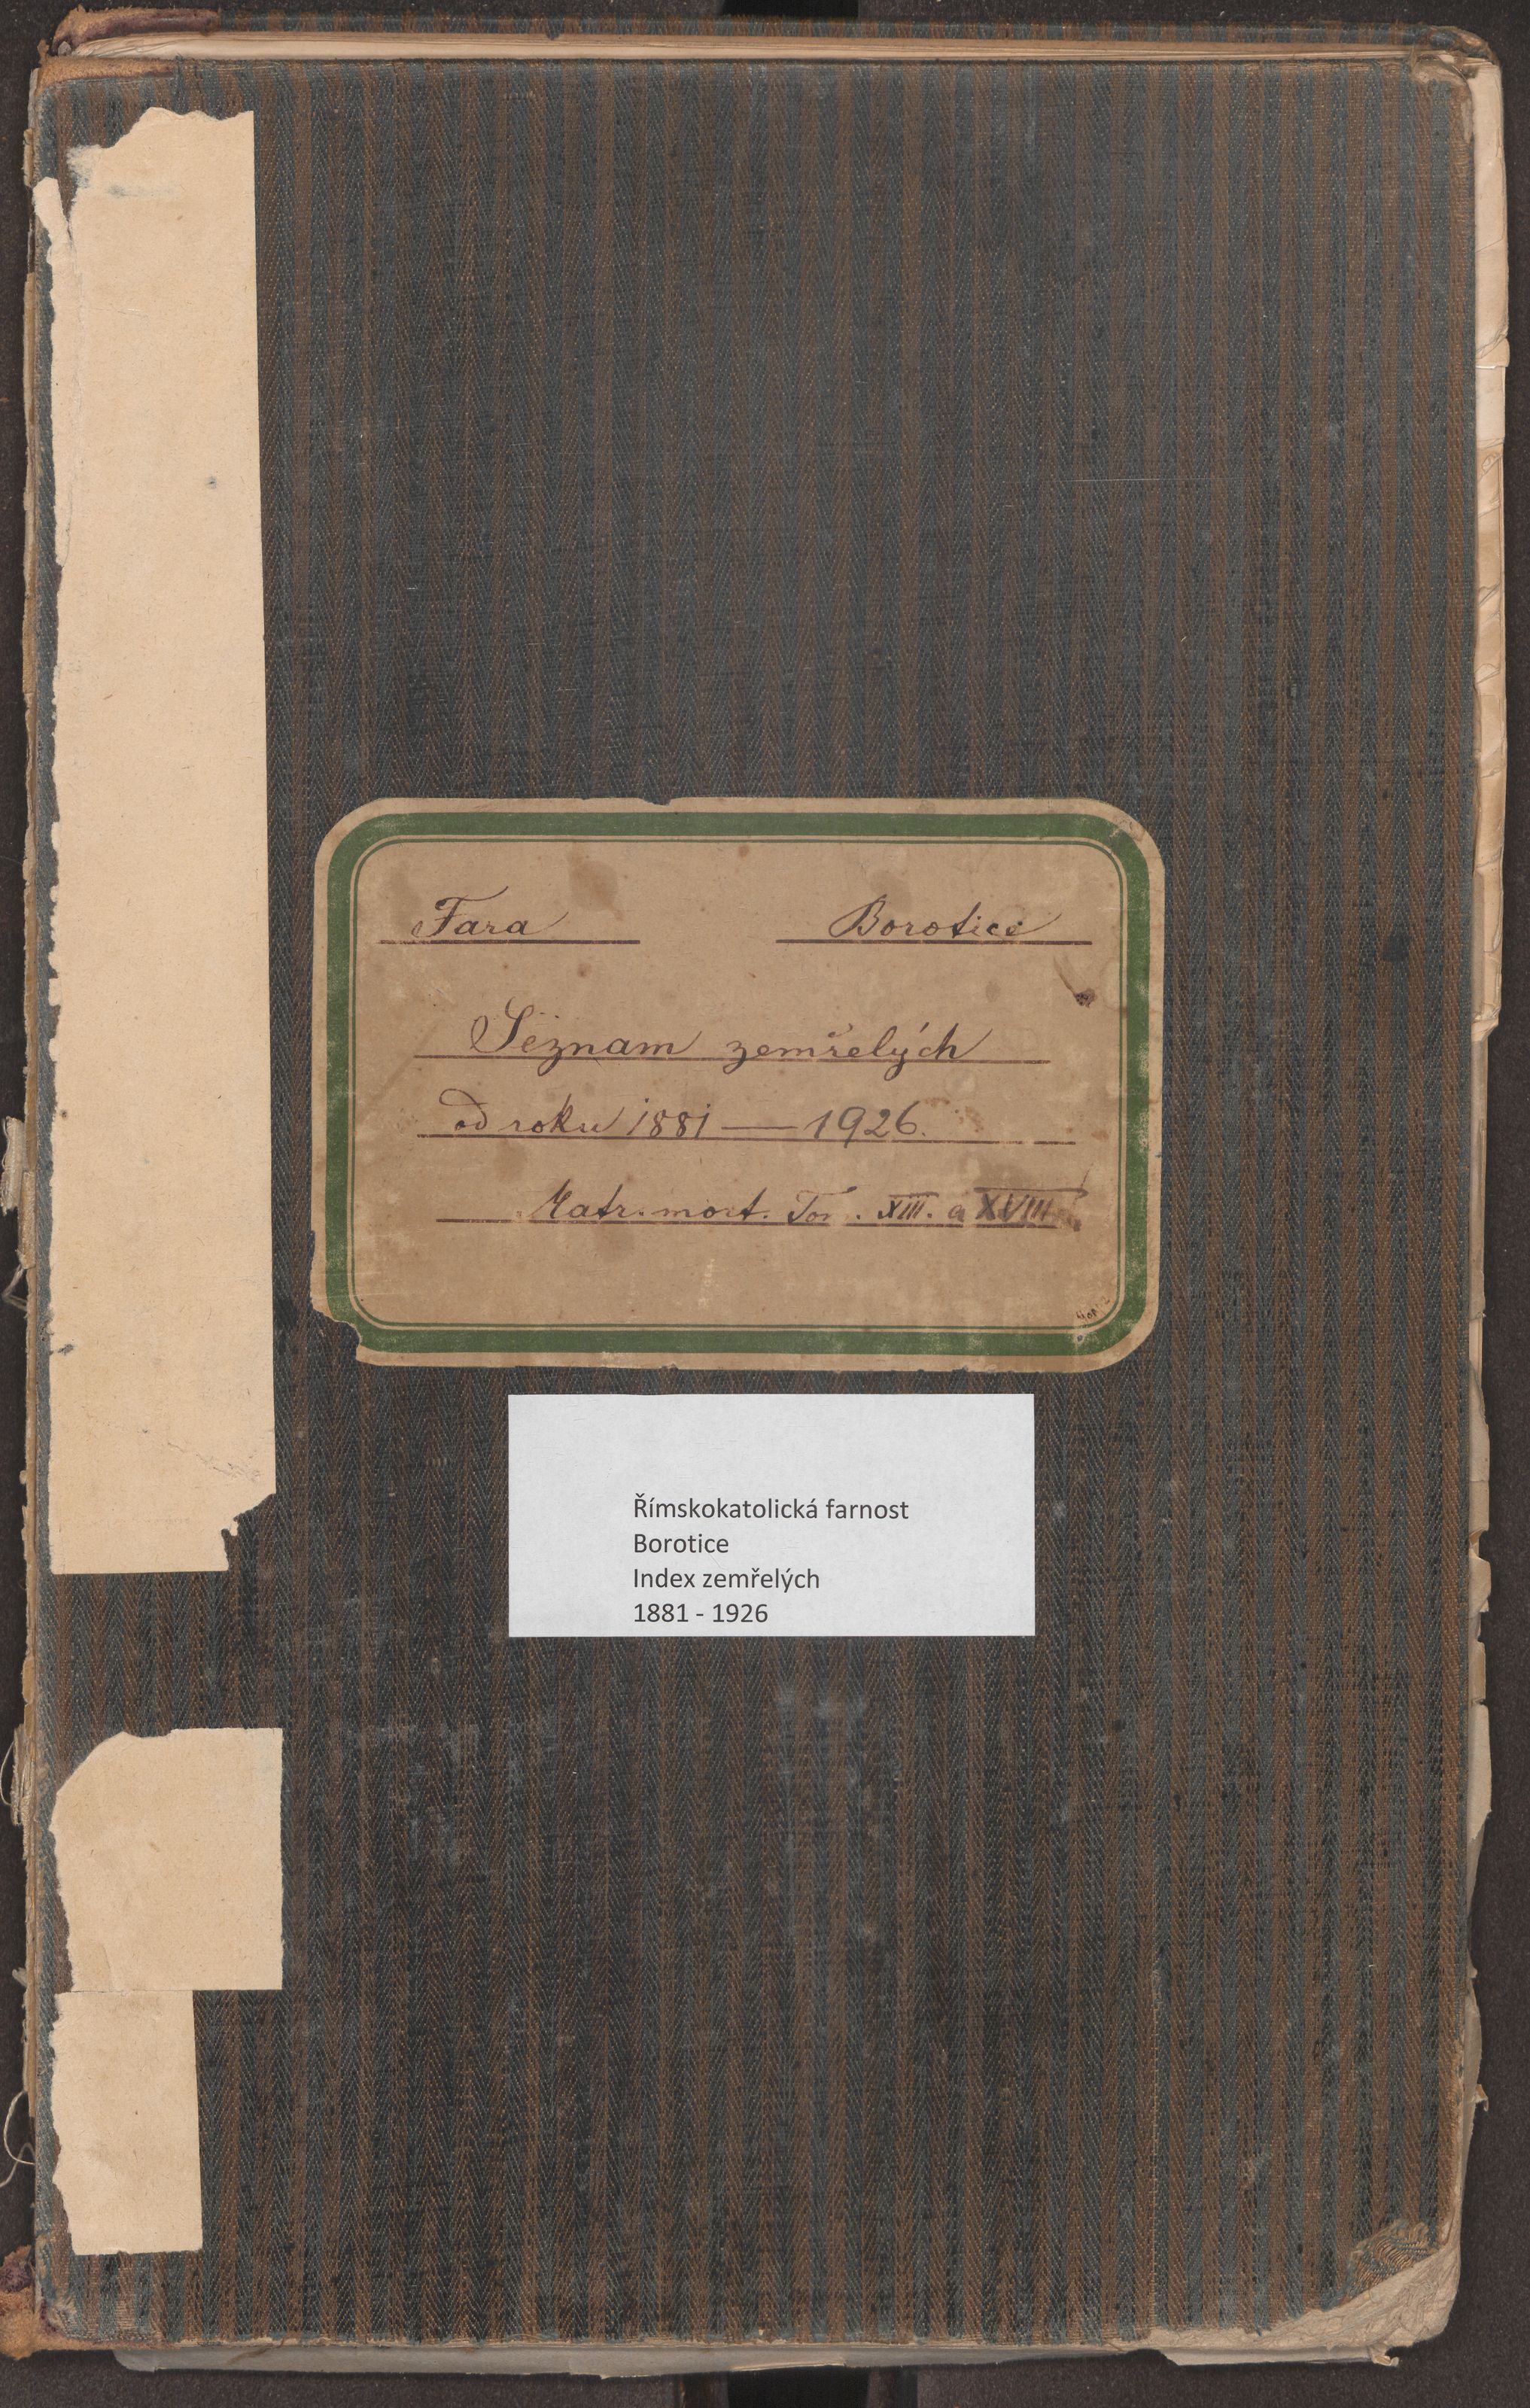 Fara Borotice
Seznam zemřelých
od roku 1881 — 1926.
Matr. mort. Tom. XIII. a XVIII
Římskokatolická farnost
Borotice
Index zemřelých
1881 - 1926